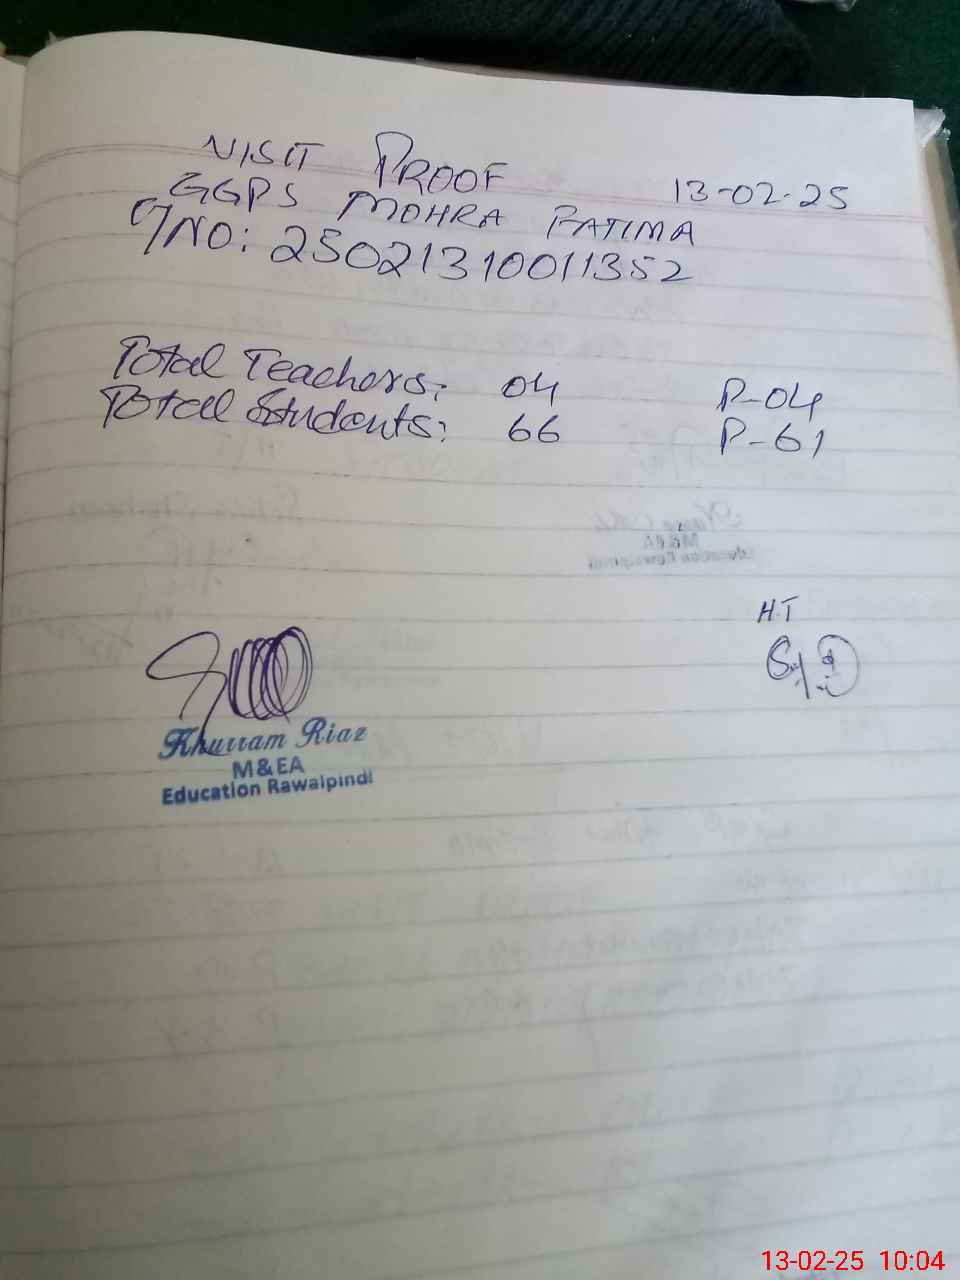 VISIT PROOF 13-02-25
GGPS MOHRA FATIMA
C/NO: 25021310011352
Total Teachers: 04 P-04
Total Students: 66 P-61
M&EA
Education Rawalpindi
H.T
Khurram Riaz
M&EA
Education Rawalpindi
13-02-25 10:04